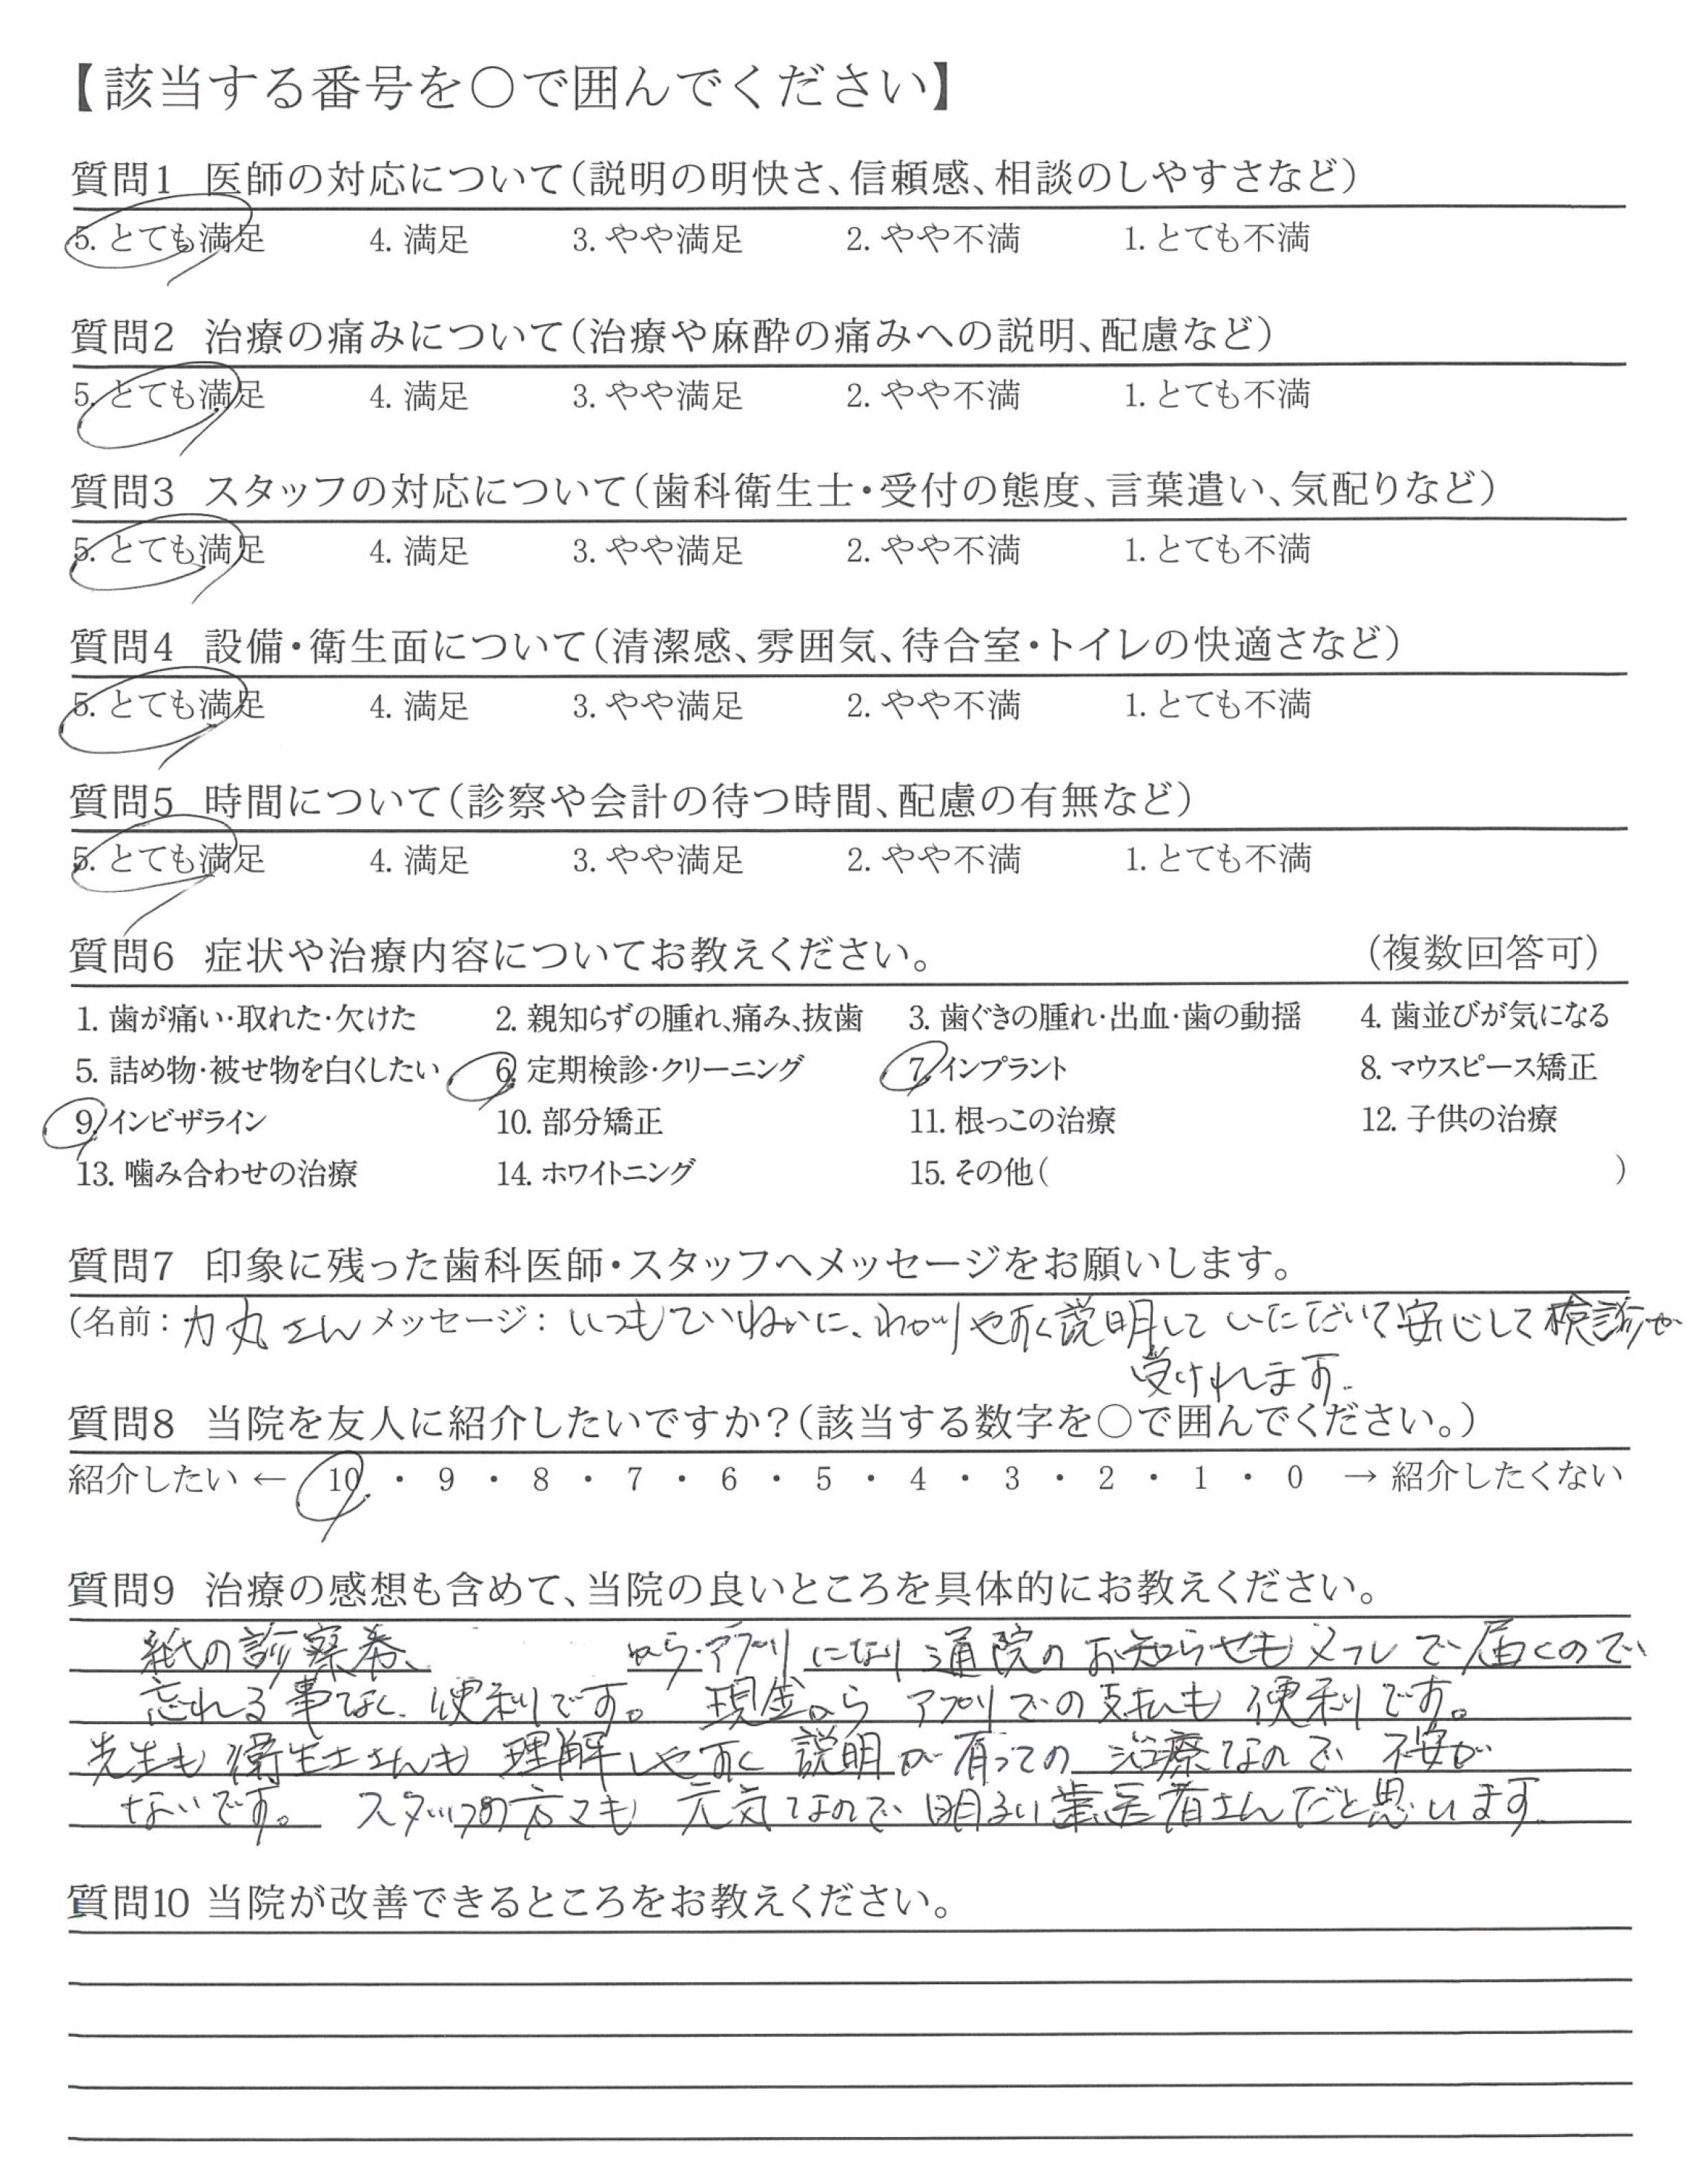 【該当する番号を○で囲んでください】
質問1 医師の対応について(説明の明快さ、信頼感、相談のしやすさなど)
5. とても満足 4. 満足 3. やや満足 2. やや不満 1. とても不満
質問2 治療の痛みについて(治療や麻酔の痛みへの説明、配慮など)
5. とても満足 4. 満足 3. やや満足 2. やや不満 1. とても不満
質問3 スタッフの対応について(歯科衛生士・受付の態度、言葉遣い、気配りなど)
5. とても満足 4. 満足 3. やや満足 2. やや不満 1. とても不満
質問4 設備・衛生面について(清潔感、雰囲気、待合室・トイレの快適さなど)
5. とても満足 4. 満足 3. やや満足 2. やや不満 1. とても不満
質問5 時間について(診察や会計の待つ時間、配慮の有無など)
5. とても満足 4. 満足 3. やや満足 2. やや不満 1. とても不満
質問6 症状や治療内容についてお教えください。 (複数回答可)
1. 歯が痛い・取れた・欠けた 2. 親知らずの腫れ、痛み、抜歯 3. 歯ぐきの腫れ・出血・歯の動揺 4. 歯並びが気になる
5. 詰め物・被せ物を白くしたい 6. 定期検診・クリーニング 7. インプラント 8. マウスピース矯正
9. インビザライン 10. 部分矯正 11. 根っこの治療 12. 子供の治療
13. 噛み合わせの治療 14. ホワイトニング 15. その他( )
質問7 印象に残った歯科医師・スタッフへメッセージをお願いします。
(名前: 力丸さん メッセージ: いつもていねいに、わかりやすく説明していただいて安心して検診が
受けれます。
質問8 当院を友人に紹介したいですか?(該当する数字を○で囲んでください。)
紹介したい ← 10 ・ 9 ・ 8 ・ 7 ・ 6 ・ 5 ・ 4 ・ 3 ・ 2 ・ 1 ・ 0 → 紹介したくない
質問9 治療の感想も含めて、当院の良いところを具体的にお教えください。
紙の診察券、 から アプリになり 通院のお知らせもメールで届くので
忘れる事なく、便利です。 現金から アプリでの支払も便利です。
先生も衛生士さんも 理解しやすく 説明が有っての 治療なので 不安が
ないです。 スタッフの方々も 元気なので 明るい歯医者さんだと思います
質問10 当院が改善できるところをお教えください。